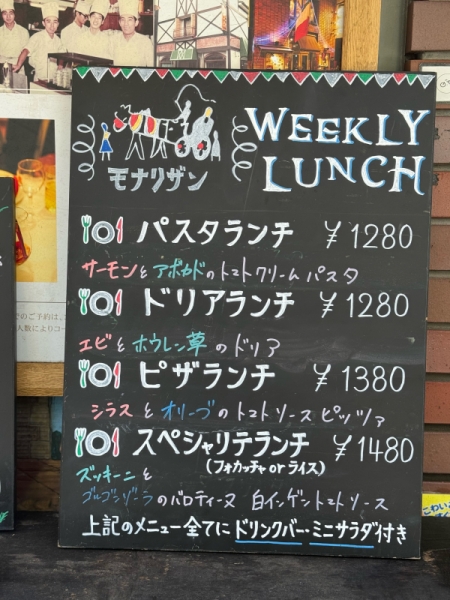 WEEKLY
LUNCH
モナリザン
パスタランチ ¥1280
サーモンとアボカドのトマトクリームパスタ
ドリアランチ ¥1280
エビとホウレン草のドリア
ピザランチ ¥1380
シラスとオリーブのトマトソースピッツァ
スペシャリテランチ ¥1480
(フォカッチャorライス)
ズッキーニと
ゴルゴンゾーラのバロティーヌ 白インゲントマトソース
上記のメニュー全てにドリンクバー・ミニサラダ付き
でのご予約は、
人数によりコー